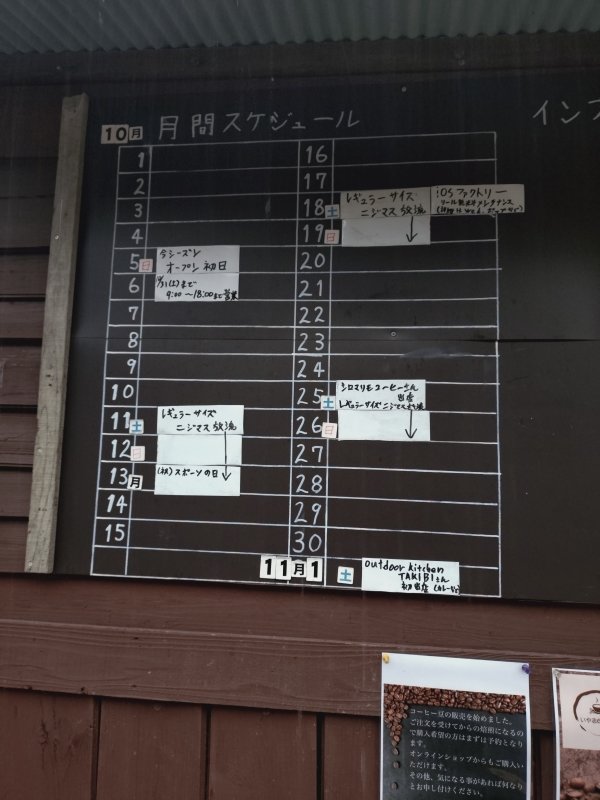 10月 月間スケジュール
インフ
1
2
3
4
5 日 今シーズン
オープン初日
6 10/31(土)まで
9:00〜18:00まで営業
7
8
9
10
11 土 レギュラーサイズ
ニジマス放流
12 日
13 月 (祝)スポーツの日
14
15
16
17
18 土 レギュラーサイズ
ニジマス放流
iosファクトリー
リール無料メンテナンス
19 日
20
21
22
23
24
25 土 シロマリモコーヒーさん
出店
レギュラーサイズニジマス放流
26 日
27
28
29
30
11月1 土 outdoor kitchen
TAKIBIさん
初出店(カレーなど)
コーヒー豆の販売を始めました。
ご注文を受けてからの焙煎になるの
で購入希望の方はまずは予約となり
ます。
オンラインショップからもご購入い
ただけます。
その他、気になる事があれば何なり
とお申し付けください。